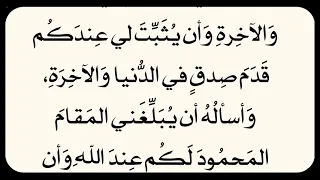 وَالآخِرةِ وَأن يُثَبِّتَ لي عِندَكُم
قَدَمَ صِدقٍ في الدُّنيا وَالآخِرَةِ،
وَأسألُهُ أن يُبَلِّغَني المَقامَ
المَحمُودَ لَكُم عِندَ اللهِ وَأن